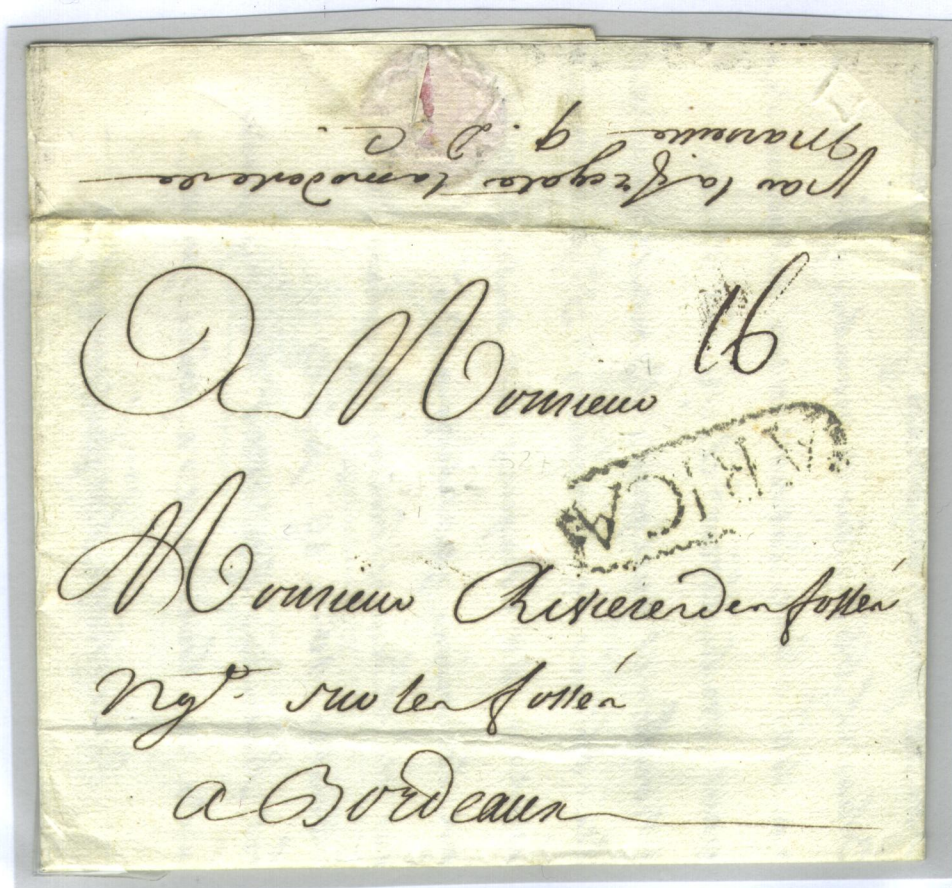 par la fregate la modeste
Marseille q. D C.
A Monsieur
16
ARICA
Monsieur Rivierre des fossés
Ng.t sur les fossés
a Bordeaux